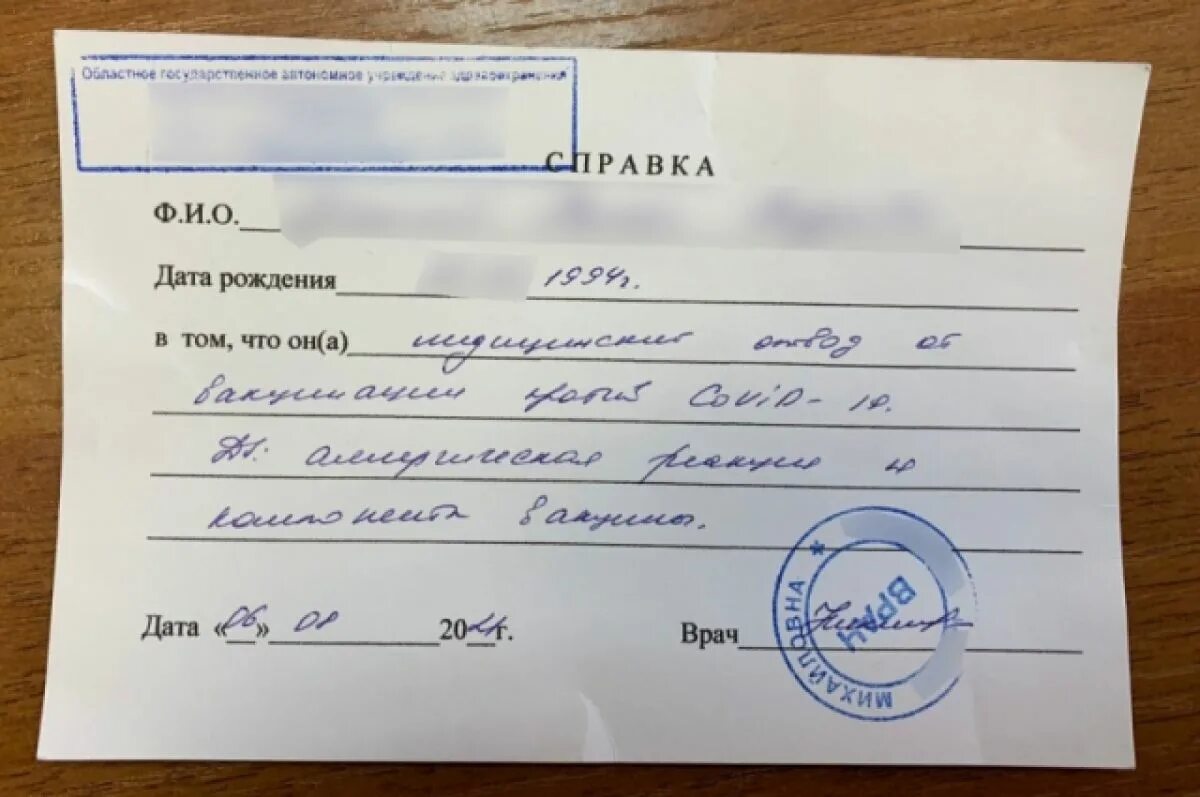 Областное государственное автономное учреждение здравоохранения
СПРАВКА
Ф.И.О.
Дата рождения 1994г.
в том, что он(а) медицинский отвод от
вакцинации против COVID-19.
Ds: аллергическая реакция на
компоненты вакцины.
Дата «06» 08 2021г.
Врач
МИХАЙЛОВНА * ВРАЧ